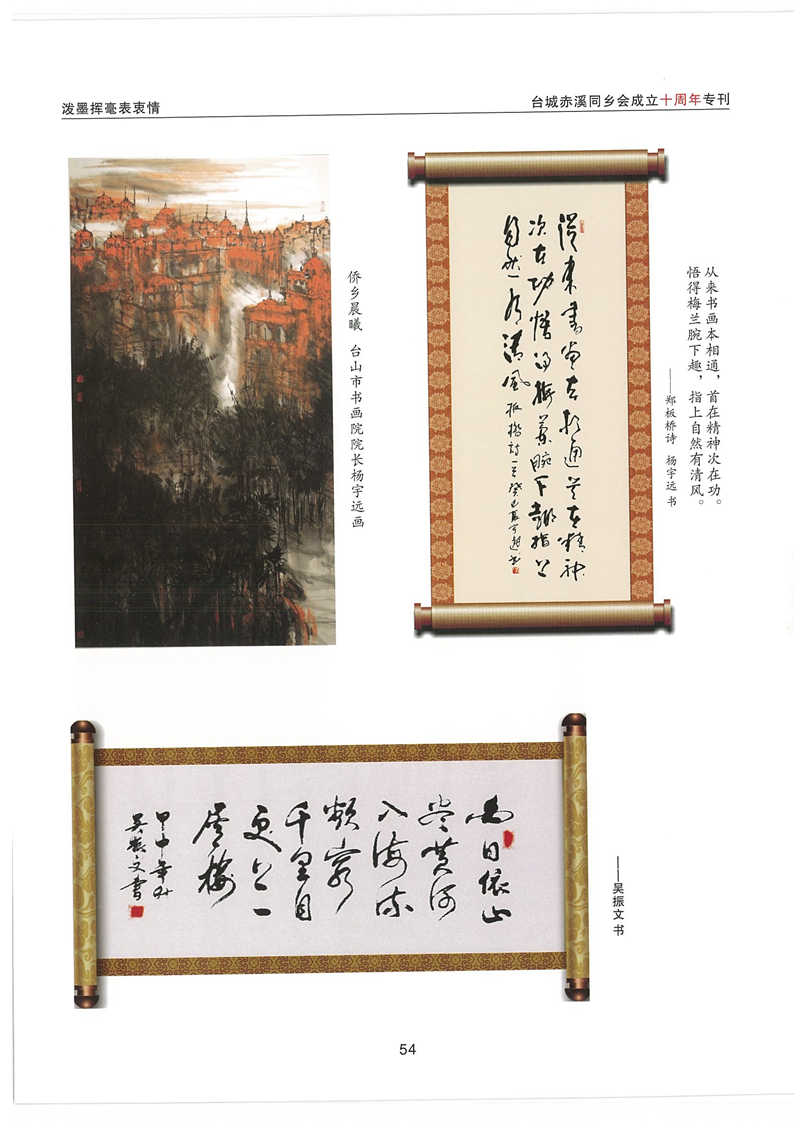 泼墨挥毫表衷情
台城赤溪同乡会成立十周年专刊
侨乡晨曦 台山市书画院院长杨宇远画
從来書画本相通首在精神
次在功悟得梅蘭腕下趣指上
自然有清风板橋诗一首癸巳夏宇远书
从来书画本相通，首在精神次在功。
悟得梅兰腕下趣，指上自然有清风。
——郑板桥诗 杨宇远 书
白日依山
尽黄河
入海流
欲穷
千里目
更上一
层楼
甲申年秋
吴振文書
——吴振文 书
54